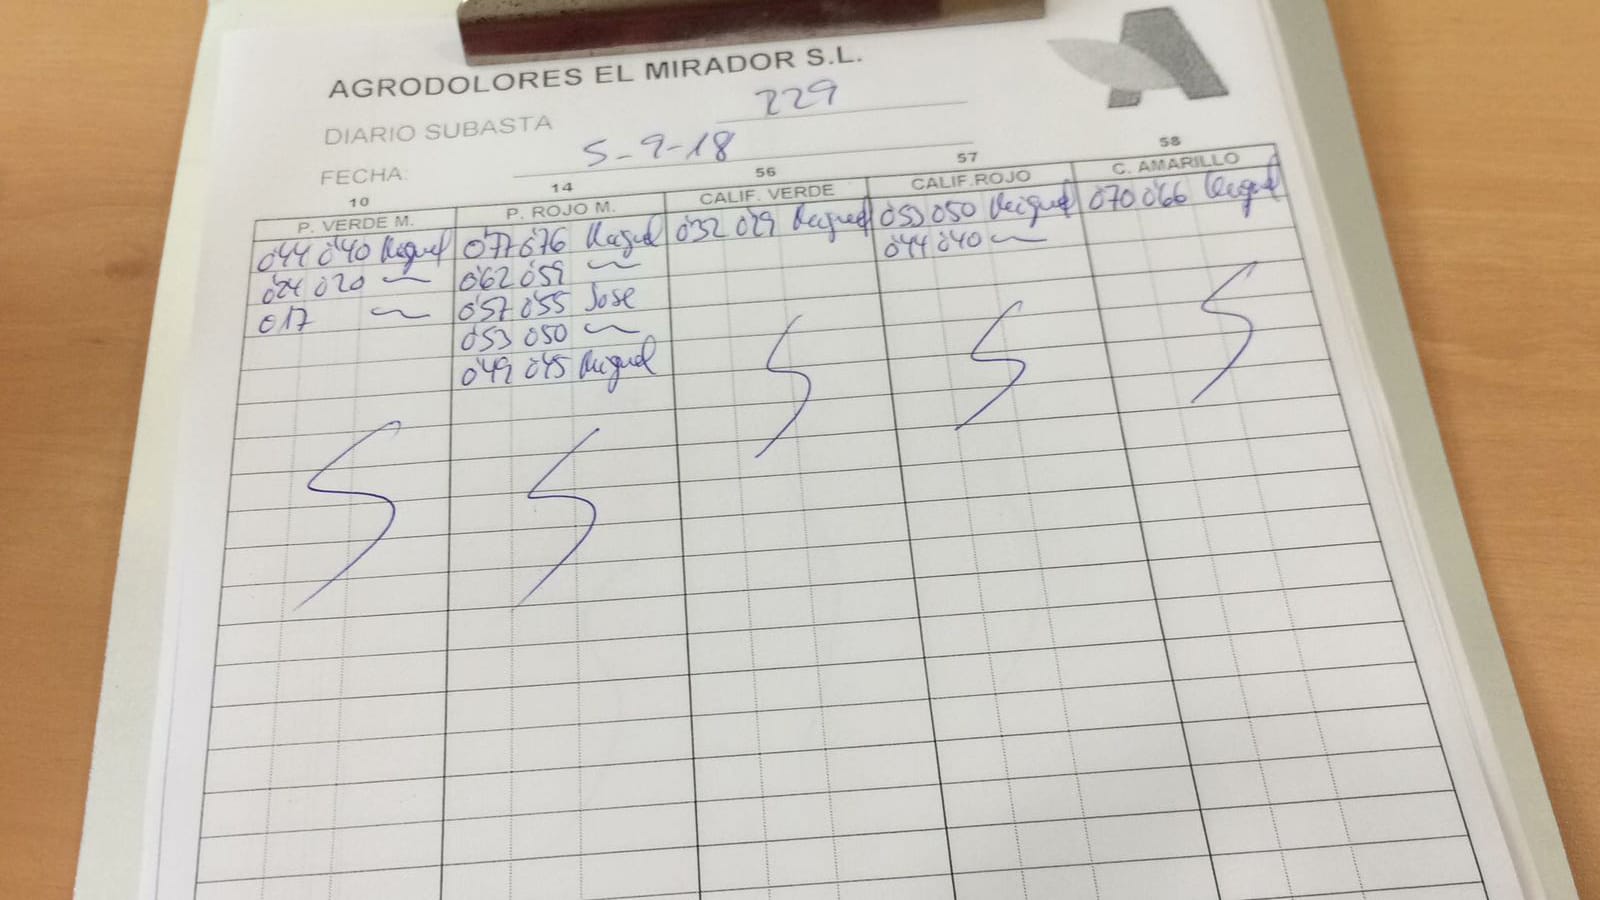 AGRODOLORES EL MIRADOR S.L.
DIARIO SUBASTA 229
FECHA: 5-9-18
10 14 56 57 58
P. VERDE M. P. ROJO M. CALIF. VERDE CALIF.ROJO C. AMARILLO
0'44 0'40 Miguel 0'77 0'76 Miguel 0'32 0'29 Miguel 0'53 0'50 Miguel 0'70 0'66 Miguel
0'24 0'20 ~ 0'62 0'59 ~ 0'44 0'40 ~
0'17 ~ 0'57 0'55 Jose
0'53 0'50 ~
0'49 0'45 Miguel